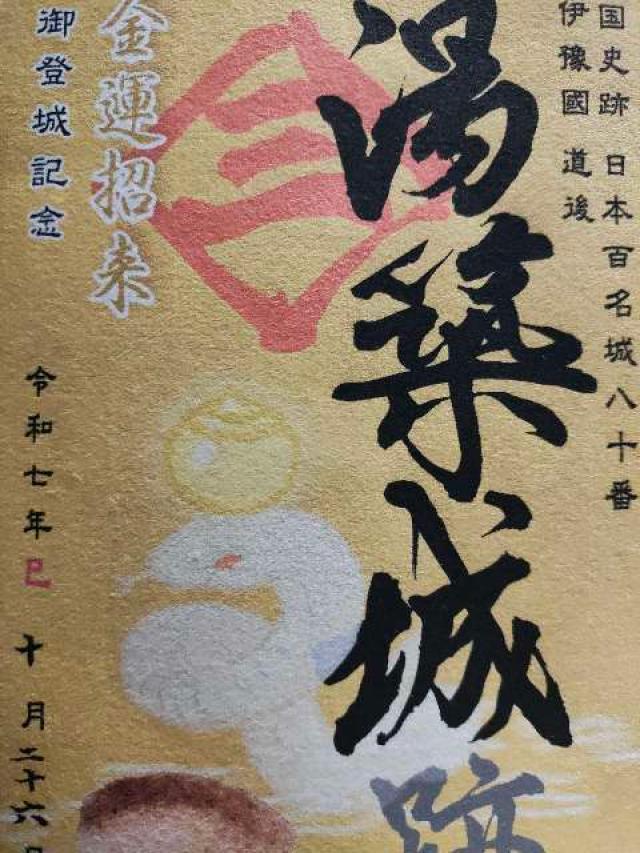 国史跡 日本百名城八十番
伊豫國 道後
湯築城跡
金運招来
御登城記念
令和七年巳 十月二十六日